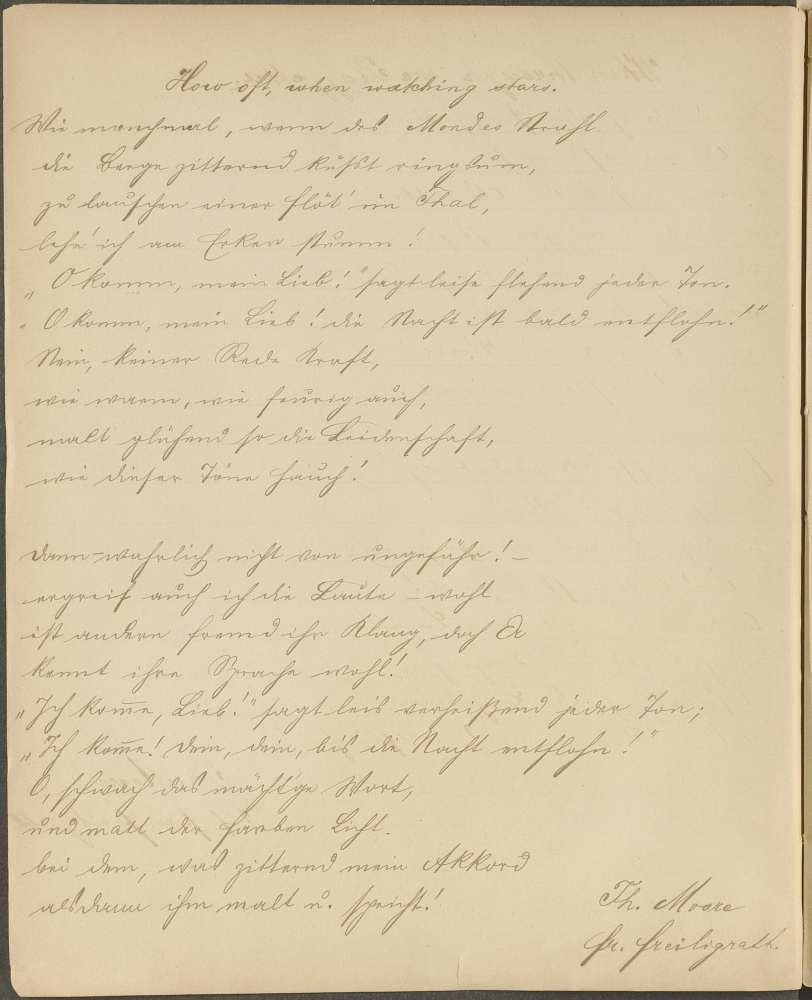 How oft, when watching stars.
Wie manchmal, wenn des Mondes Strahl
die Berge zitternd küßt ringsum,
zu lauschen einer Flöt' im Thal,
lehn' ich am Erker stumm!
„O komm, mein Lieb!" sagt leise flehend jeder Ton.
„O komm, mein Lieb! die Nacht ist bald entflohn!"
Nein, keiner Rede Kraft,
wie warm, wie feurig auch,
malt glühend so die Leidenschaft,
wie dieser Töne Hauch!
Dann – wahrlich nicht von ungefähr! –
ergreif auch ich die Laute – wohl
ist andern fremd ihr Klang, doch Er
kennt ihre Sprache wohl!
„Ich kom̅e, Lieb!" sagt leis verheißend jeder Ton;
„Ich kom̅e! Dein, dein, bis die Nacht entflohn!"
O, schwach das mächt'ge Wort,
und matt der Farben Licht.
bei dem, was zitternd mein Akkord
alsdann ihm malt u. spricht!
Th. Moore
Fr. Freiligrath.